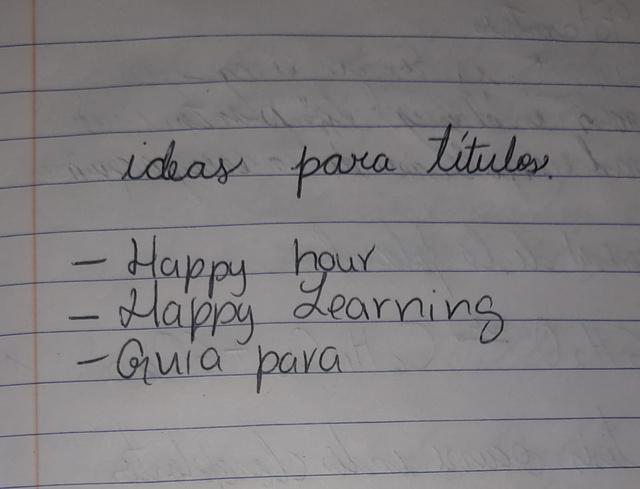 ideas para títulos.
- Happy hour
- Happy Learning
- Guia para